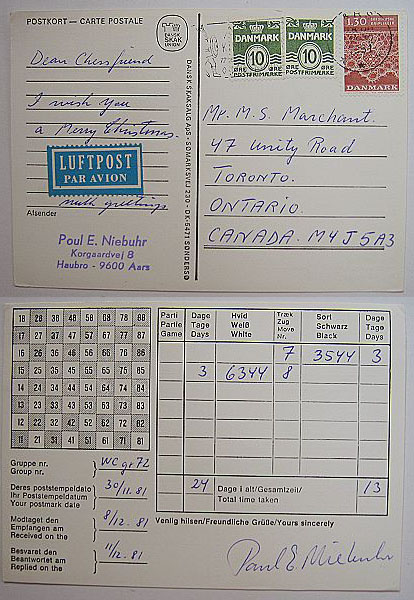 POSTKORT — CARTE POSTALE
DANSK
SKAK
UNION
Dear Chessfriend
I wish you
a Merry Christmas.
LUFTPOST
PAR AVION
with greetings
Afsender
Poul E. Niebuhr
Korgaardvej 8
Haubro - 9600 Aars
DANSK SKAKSALG ApS · SOMARKSVEJ 230 · DK-5471 SØNDERSØ
DANMARK
10 ØRE
POSTFRIMÆRKE
DANMARK
10 ØRE
POSTFRIMÆRKE
1.30
DANMARK
Mr. M. S. Marchant.
47 Unity Road
TORONTO.
ONTARIO.
CANADA. M4J5A3
18 28 38 48 58 68 78 88
17 27 37 47 57 67 77 87
16 26 36 46 56 66 76 86
15 25 35 45 55 65 75 85
14 24 34 44 54 64 74 84
13 23 33 43 53 63 73 83
12 22 32 42 52 62 72 82
11 21 31 41 51 61 71 81
Parti Partie Game
Dage Tage Days
Hvid Weiß White
Træk Zug Move Nr.
Sort Schwarz Black
Dage Tage Days
7 3544 3
3 6344 8
24 Dage i alt/Gesamtzeit/ Total time taken 13
Gruppe nr. Group nr. WC gr 72
Deres poststempeldato
Ihr Poststempeldatum
Your postmark date
30/11.81
Modtaget den
Empfangen am
Received on the
8/12.81
Besvaret den
Beantwortet am
Replied on the
11/12.81
Venlig hilsen/Freundliche Grüße/Yours sincerely
Poul E Niebuhr